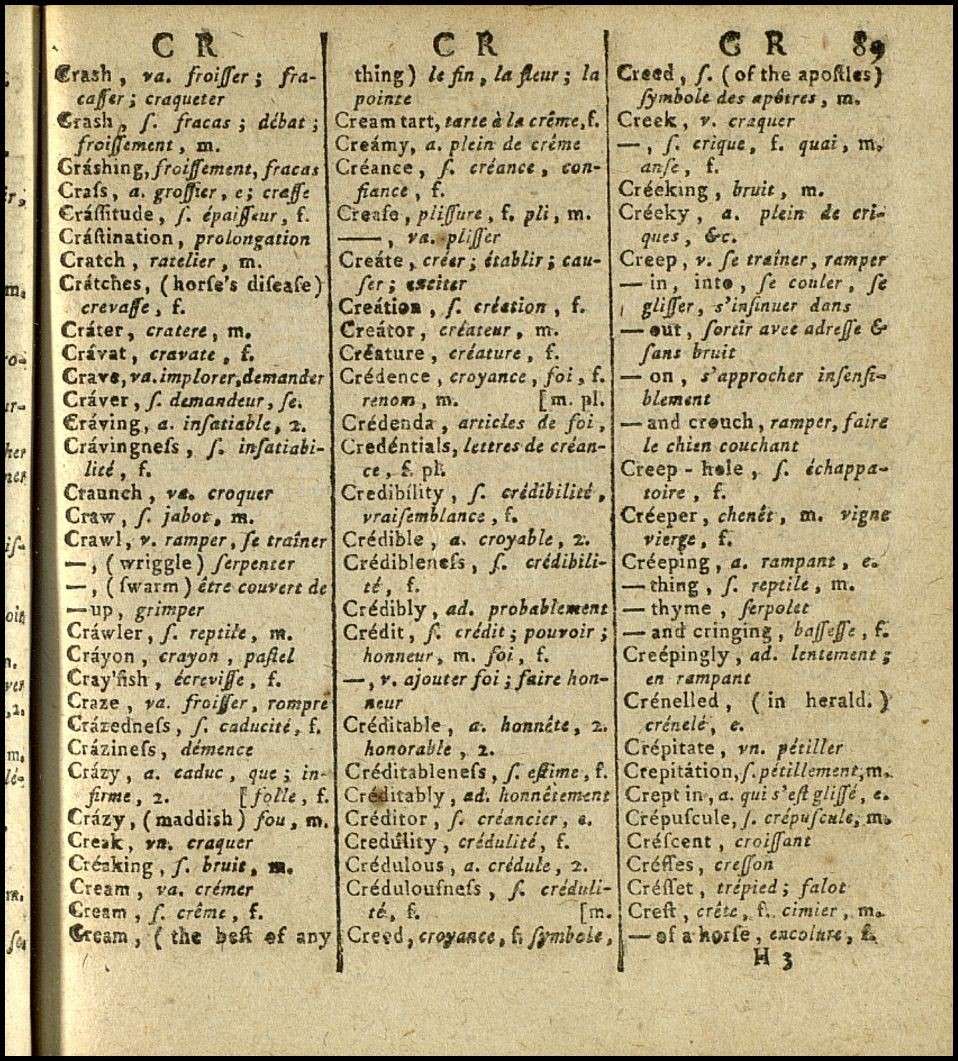 C R
Crash, va. froiſſer; fra-
caſſer; craqueter
Crash, ſ. fracas; débat;
froiſſement, m.
Gráshing, froiſſement, fracas
Craſs, a. groſſier, e; craſſe
Cráſſitude, ſ. épaiſſeur, f.
Cráſtination, prolongation
Cratch, ratelier, m.
Crátches, (horſe's diſeaſe)
crevaſſe, f.
Cráter, cratere, m.
Crávat, cravate, f.
Crave, va. implorer, demander
Cráver, ſ. demandeur, ſe.
Cráving, a. inſatiable, 2.
Crávingneſs, ſ. inſatiabi-
lité, f.
Craunch, va. croquer
Craw, ſ. jabot, m.
Crawl, v. ramper, ſe traîner
—, (wriggle) ſerpenter
—, (ſwarm) être couvert de
— up, grimper
Cráwler, ſ. reptile, m.
Cráyon, crayon, paſtel
Cray'fish, écreviſſe, f.
Craze, va. froiſſer, rompre
Crázedneſs, ſ. caducité, f.
Crázineſs, démence
Crázy, a. caduc, que; in-
firme, 2. [folle, f.
Crázy, (maddish) fou, m.
Creak, vn. craquer
Créaking, ſ. bruit, m.
Cream, va. crémer
Cream, ſ. crême, f.
Cream, (the beſt of any
C R
thing) le fin, la fleur; la
pointe
Cream tart, tarte à la crême, f.
Creámy, a. plein de crême
Créance, ſ. créance, con-
fiance, f.
Creaſe, pliſſure, f. pli, m.
——, va. pliſſer
Creáte, créer; établir; cau-
ſer; exciter
Creátion, ſ. création, f.
Creátor, créateur, m.
Créature, créature, f.
Crédence, croyance, foi, f.
renom, m. [m. pl.
Crédenda, articles de foi,
Credéntials, lettres de créan-
ce, f. pl.
Credibílity, ſ. crédibilité,
vraiſemblance, f.
Crédible, a. croyable, 2.
Crédibleneſs, ſ. crédibili-
té, f.
Crédibly, ad. probablement
Crédit, ſ. crédit; pouvoir;
honneur, m. foi, f.
—, v. ajouter foi; faire hon-
neur
Créditable, a. honnête, 2.
honorable, 2.
Créditableneſs, ſ. eſtime, f.
Créditably, ad. honnêtement
Créditor, ſ. créancier, e.
Credúlity, crédulité, f.
Crédulous, a. crédule, 2.
Crédulouſneſs, ſ. créduli-
té, f. [m.
Creed, croyance, f. ſymbole,
C R 89
Creed, ſ. (of the apoſtles)
ſymbole des apôtres, m.
Creek, v. craquer
—, ſ. crique, f. quai, m.
anſe, f.
Créeking, bruit, m.
Créeky, a. plein de cri-
ques, &c.
Creep, v. ſe traîner, ramper
— in, into, ſe couler, ſe
gliſſer, s'inſinuer dans
— out, ſortir avec adreſſe &
ſans bruit
— on, s'approcher inſenſi-
blement
— and crouch, ramper, faire
le chien couchant
Creep-hole, ſ. échappa-
toire, f.
Créeper, chenêt, m. vigne
vierge, f.
Créeping, a. rampant, e.
— thing, ſ. reptile, m.
— thyme, ſerpolet
— and cringing, baſſeſſe, f.
Creépingly, ad. lentement;
en rampant
Crénelled, (in herald.)
crénelé, e.
Crépitate, vn. pétiller
Crepitátion, ſ. pétillement, m.
Crept in, a. qui s'eſt gliſſé, e.
Crépuſcule, ſ. crépuſcule, m.
Créſcent, croiſſant
Créſſes, creſſon
Créſſet, trépied; falot
Creſt, crête, f. cimier, m.
— of a horſe, encolure, f.
H 3